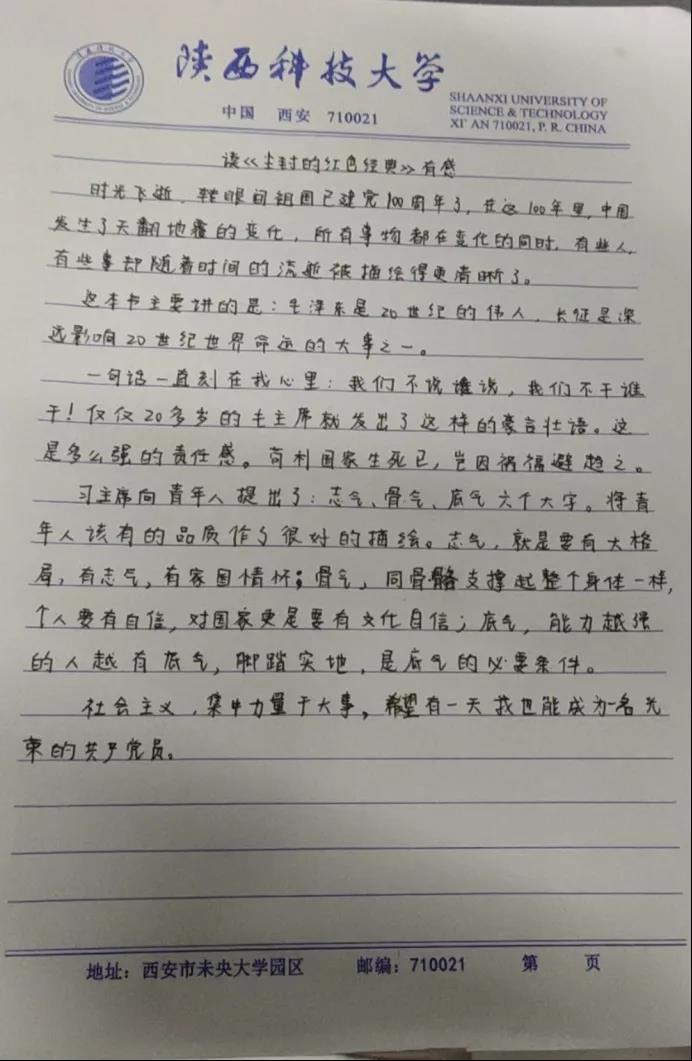 陕西科技大学
中国 西安 710021
SHAANXI UNIVERSITY OF
SCIENCE & TECHNOLOGY
XI' AN 710021, P. R. CHINA
读《尘封的红色经典》有感
时光飞逝，转眼间祖国已建党100周年了，在这100年里，中国
发生了天翻地覆的变化，所有事物都在变化的同时，有些人，
有些事却随着时间的流逝被描绘得更清晰了。
这本书主要讲的是：毛泽东是20世纪的伟人，长征是深
远影响20世纪世界命运的大事之一。
一句话一直刻在我心里：我们不说谁说，我们不干谁
干！仅仅20多岁的毛主席就发出了这样的豪言壮语。这
是多么强的责任感。苟利国家生死已，岂因祸福避趋之。
习主席向青年人提出了：志气、骨气、底气六个大字。将青
年人该有的品质作了很好的描绘。志气，就是要有大格
局，有志气，有家国情怀；骨气，同骨骼支撑起整个身体一样，
个人要有自信，对国家更是要有文化自信；底气，能力越强
的人越有底气，脚踏实地，是底气的必要条件。
社会主义，集中力量干大事，希望有一天我也能成为一名光
荣的共产党员。
地址：西安市未央大学园区 邮编：710021 第 页